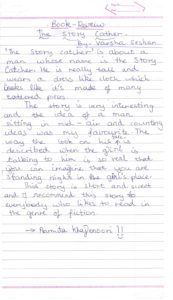 Book-Review
The Story Catcher
By- Varsha Seshan
'The Story catcher' is about a
man whose name is the Story
Catcher. He is really tall and
wears a dress like cloth which
looks like it's made of many
tattered pens.
The story is very interesting
and the idea of a man
sitting in mid-air and counting
ideas was my favourite. The
way the look on his face is
described when the girl is
talking to him is so real that
you can imagine that you are
standing right in the girl's place.
This story is short and sweet
and I recommend this story to
everybody who likes to read in
the genre of fiction.